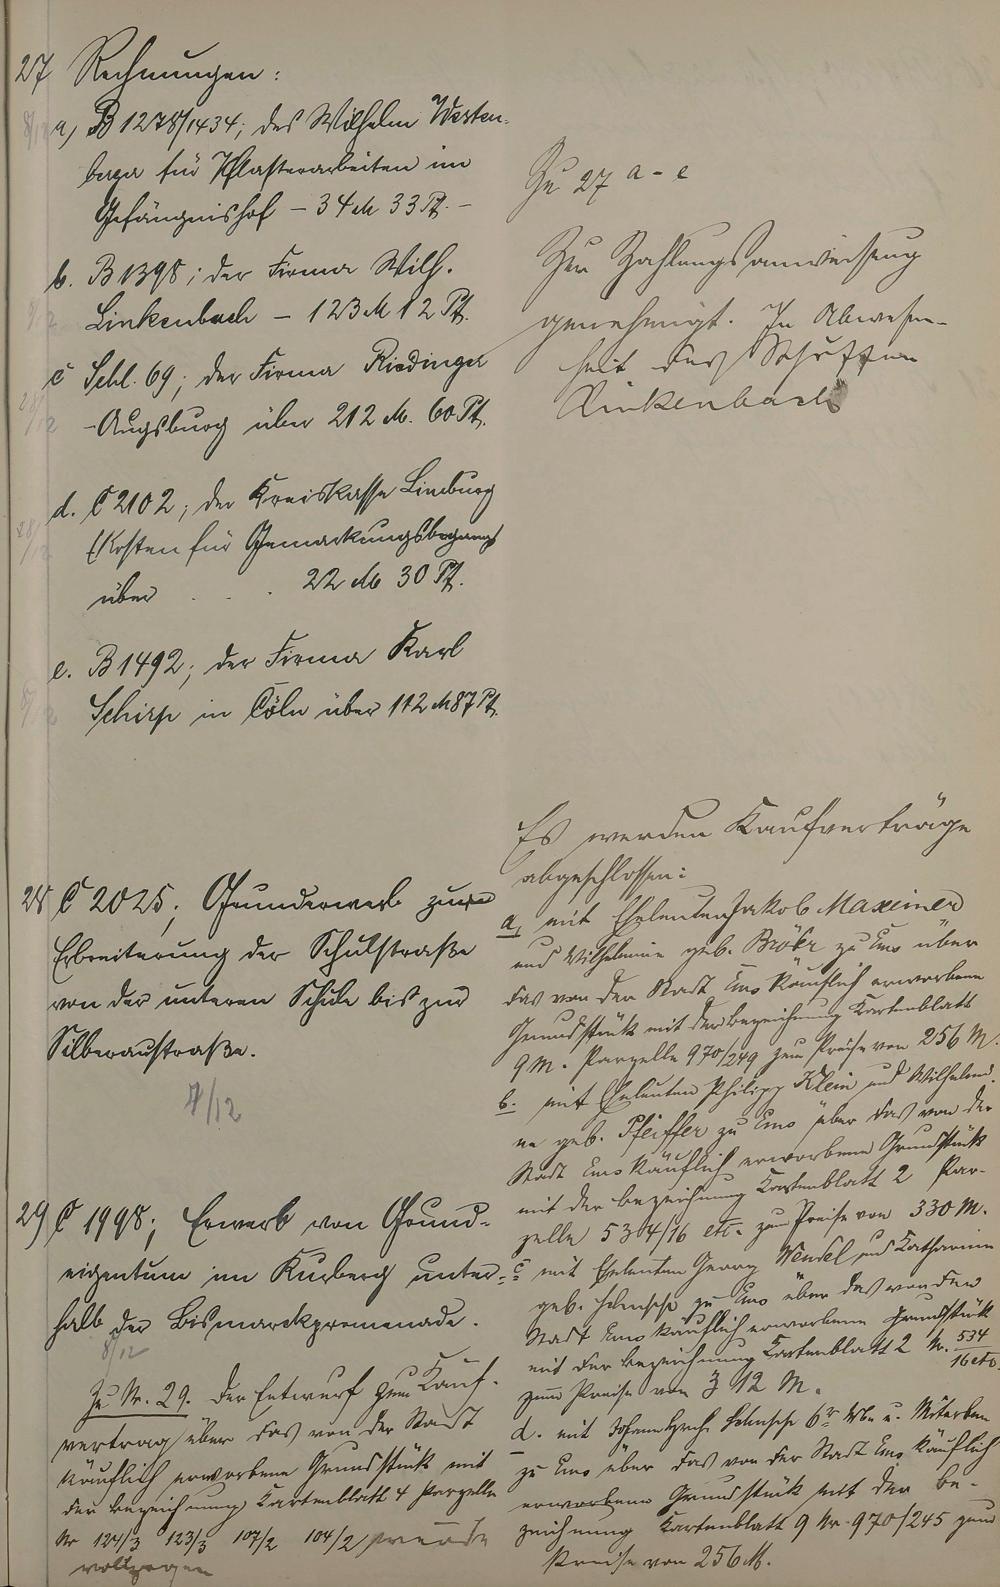 27 Rechnungen:
a, B 1278/1434; des Wilhelm Westen-
berger für Pflasterarbeiten im
Gefängnishof - 34 M 33 Pf. -
b. B 1398; der Firma Wilh.
Linkenbach - 123 M 12 Pf.
c Schl. 69; der Firma Riedinger
-Augsburg über 212 M. 60 Pf.
d. C 2102; der Kreiskasse Limburg
(Kosten für Gemarkungsbegang
über . . . 22 M 30 Pf.
e. B 1492; der Firma Karl
Schirp in Cöln über 112 M 87 Pf.
Zu 27 a - e
Zur Zahlungsanweisung
genehmigt. In Abwesen-
heit des Schöffen
Linkenbach
28 C 2025; Grunderwerb zur
Erbreiterung der Schulstraße
von der unteren Schule bis zur
Silberaustraße.
7/12
29 C 1998; Erwerb von Grund-
eigentum im Kurberg unter-
halb der Bismarckpromenade.
8/12
Zu Nr. 29. Der Entwurf zum Kauf-
vertrag über das von der Stadt
käuflich erworbene Grundstück mit
der Bezeichnung Kartenblatt 4 Parzelle
Nr 124/3 123/3 107/2 104/2 wurde
vollzogen
Es werden Kaufverträge
abgeschlossen:
a, mit Eheleuten Jakob Maxeiner
und Wilhelmine geb. Bröhr zu Ems über
das von der Stadt Ems käuflich erworbene
Grundstück mit der Bezeichnung Kartenblatt
9 M. Parzelle 970/249 zum Preise von 256 M.
b. mit Eheleuten Philipp Klein und Wilhelmi-
ne geb. Pfeiffer zu Ems über das von der
Stadt Ems käuflich erworbene Grundstück
mit der Bezeichnung Kartenblatt 2 Par-
zelle 534/16 etc. zum Preise von 330 M.
c mit Eheleuten Georg Wensel und Katharina
geb. zu Ems über das von der
Stadt Ems käuflich erworbene Grundstück
mit der Bezeichnung Kartenblatt 2 Nr. 534/16 etc.
zum Preise von 312 M.
d. mit u. Miterben
zu Ems über das von der Stadt Ems käuflich
erworbene Grundstück mit der Be-
zeichnung Kartenblatt 9 Nr. 970/245 zum
Preise von 256 M.